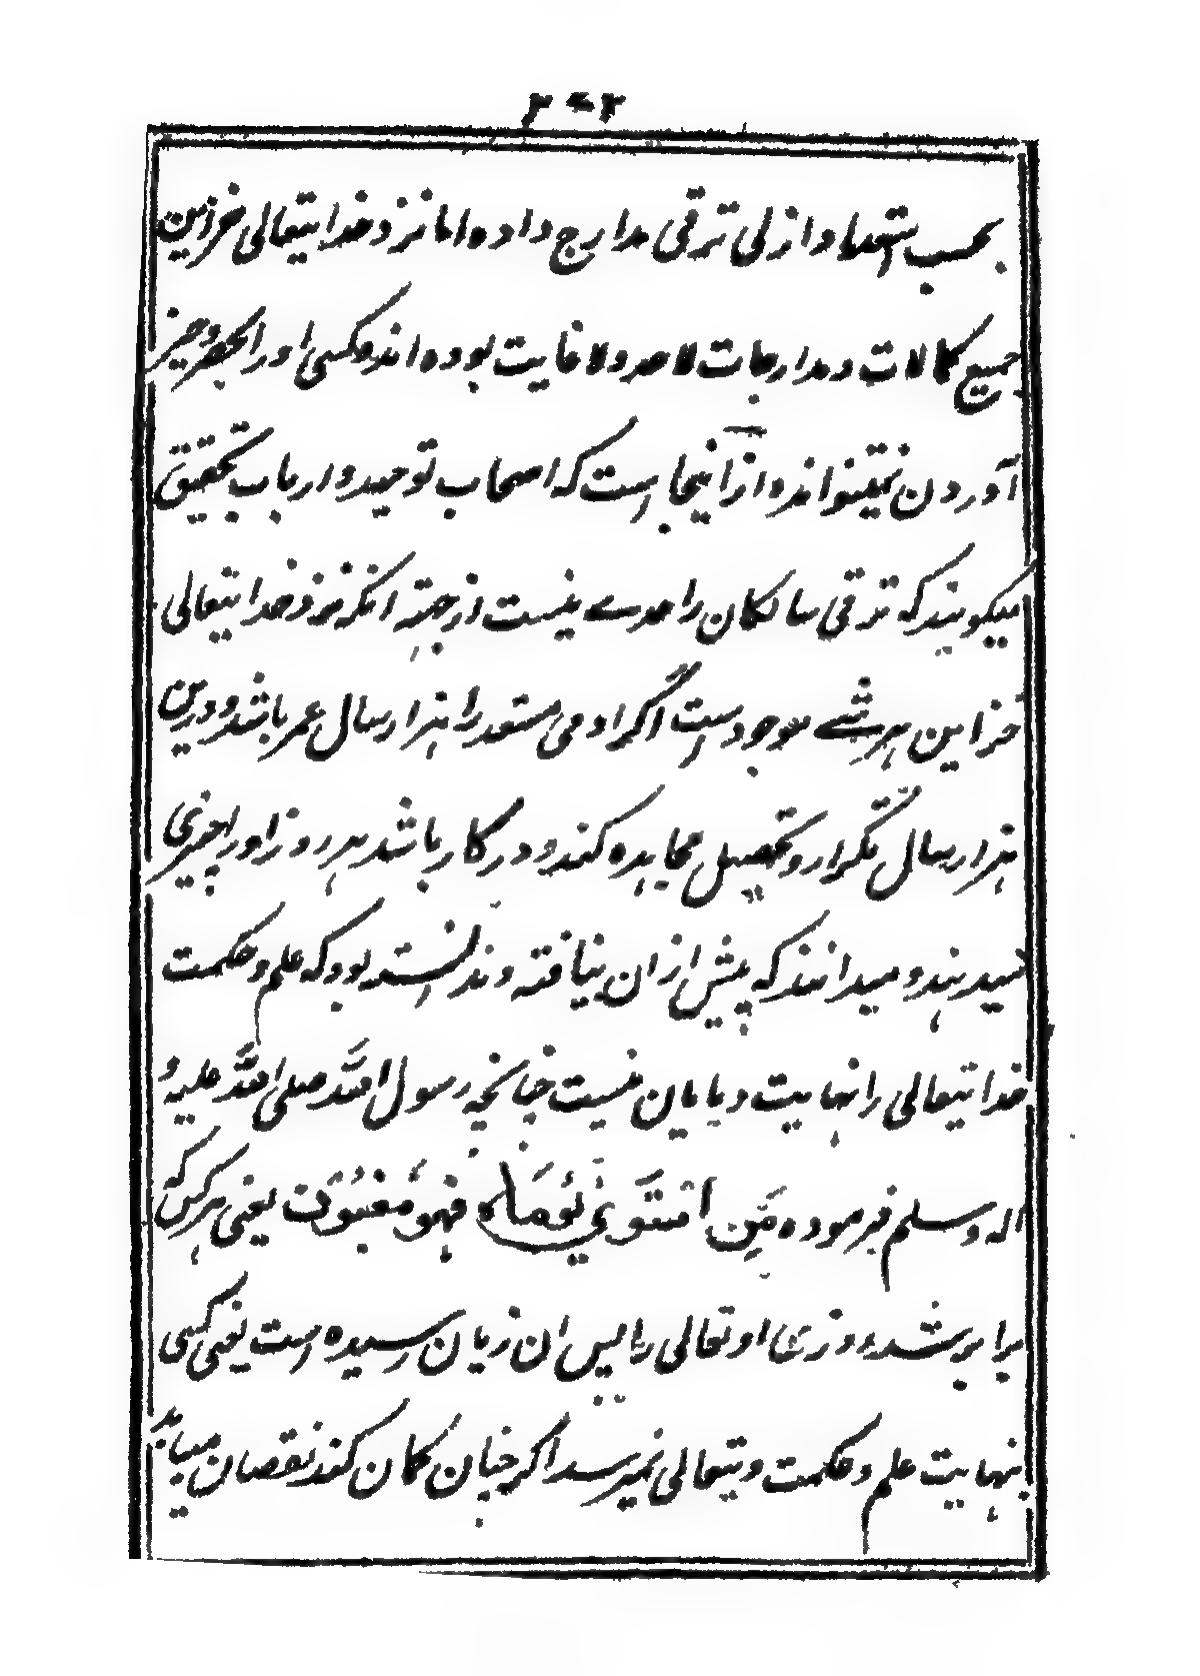 بحسب استعداد ازلی ترقی مدارج داده اما نزد خدایتعالی خزاین
جمیع کمالات و مدارجات لاحد و لاغایت بوده اند و کسی اورا بحصر و حیز
آوردن نمیتواند و از آنجا است که اصحاب توحید و ارباب تحقیق
میگویند که ترقی سالکان را حدے نیست از جهته انکه نزد خدایتعالی
خزاین هر شے موجودست اگر ادمی مستعد را هزار سال عمر باشد و درین
هزار سال تکرار و تحصیل مجاهده کند و در کار باشد هر روز اورا چیزی
میدهند و میدانند که پیش از ان نیافته و ندانسته بود که علم و حکمت
خدایتعالی را نهایت و پایان نیست چنانچه رسول الله صلی الله علیه و
اله وسلم فرموده مَن استَوی یَومَاه فهو مَغبُون یعنی هر کس که
برابر شد دو روز او تعالی را پس ان زیان رسیده است یعنی کسی
بنهایت علم و حکمت ویتعالی نمیرسد اگر چنان گمان کند نقصان میباید